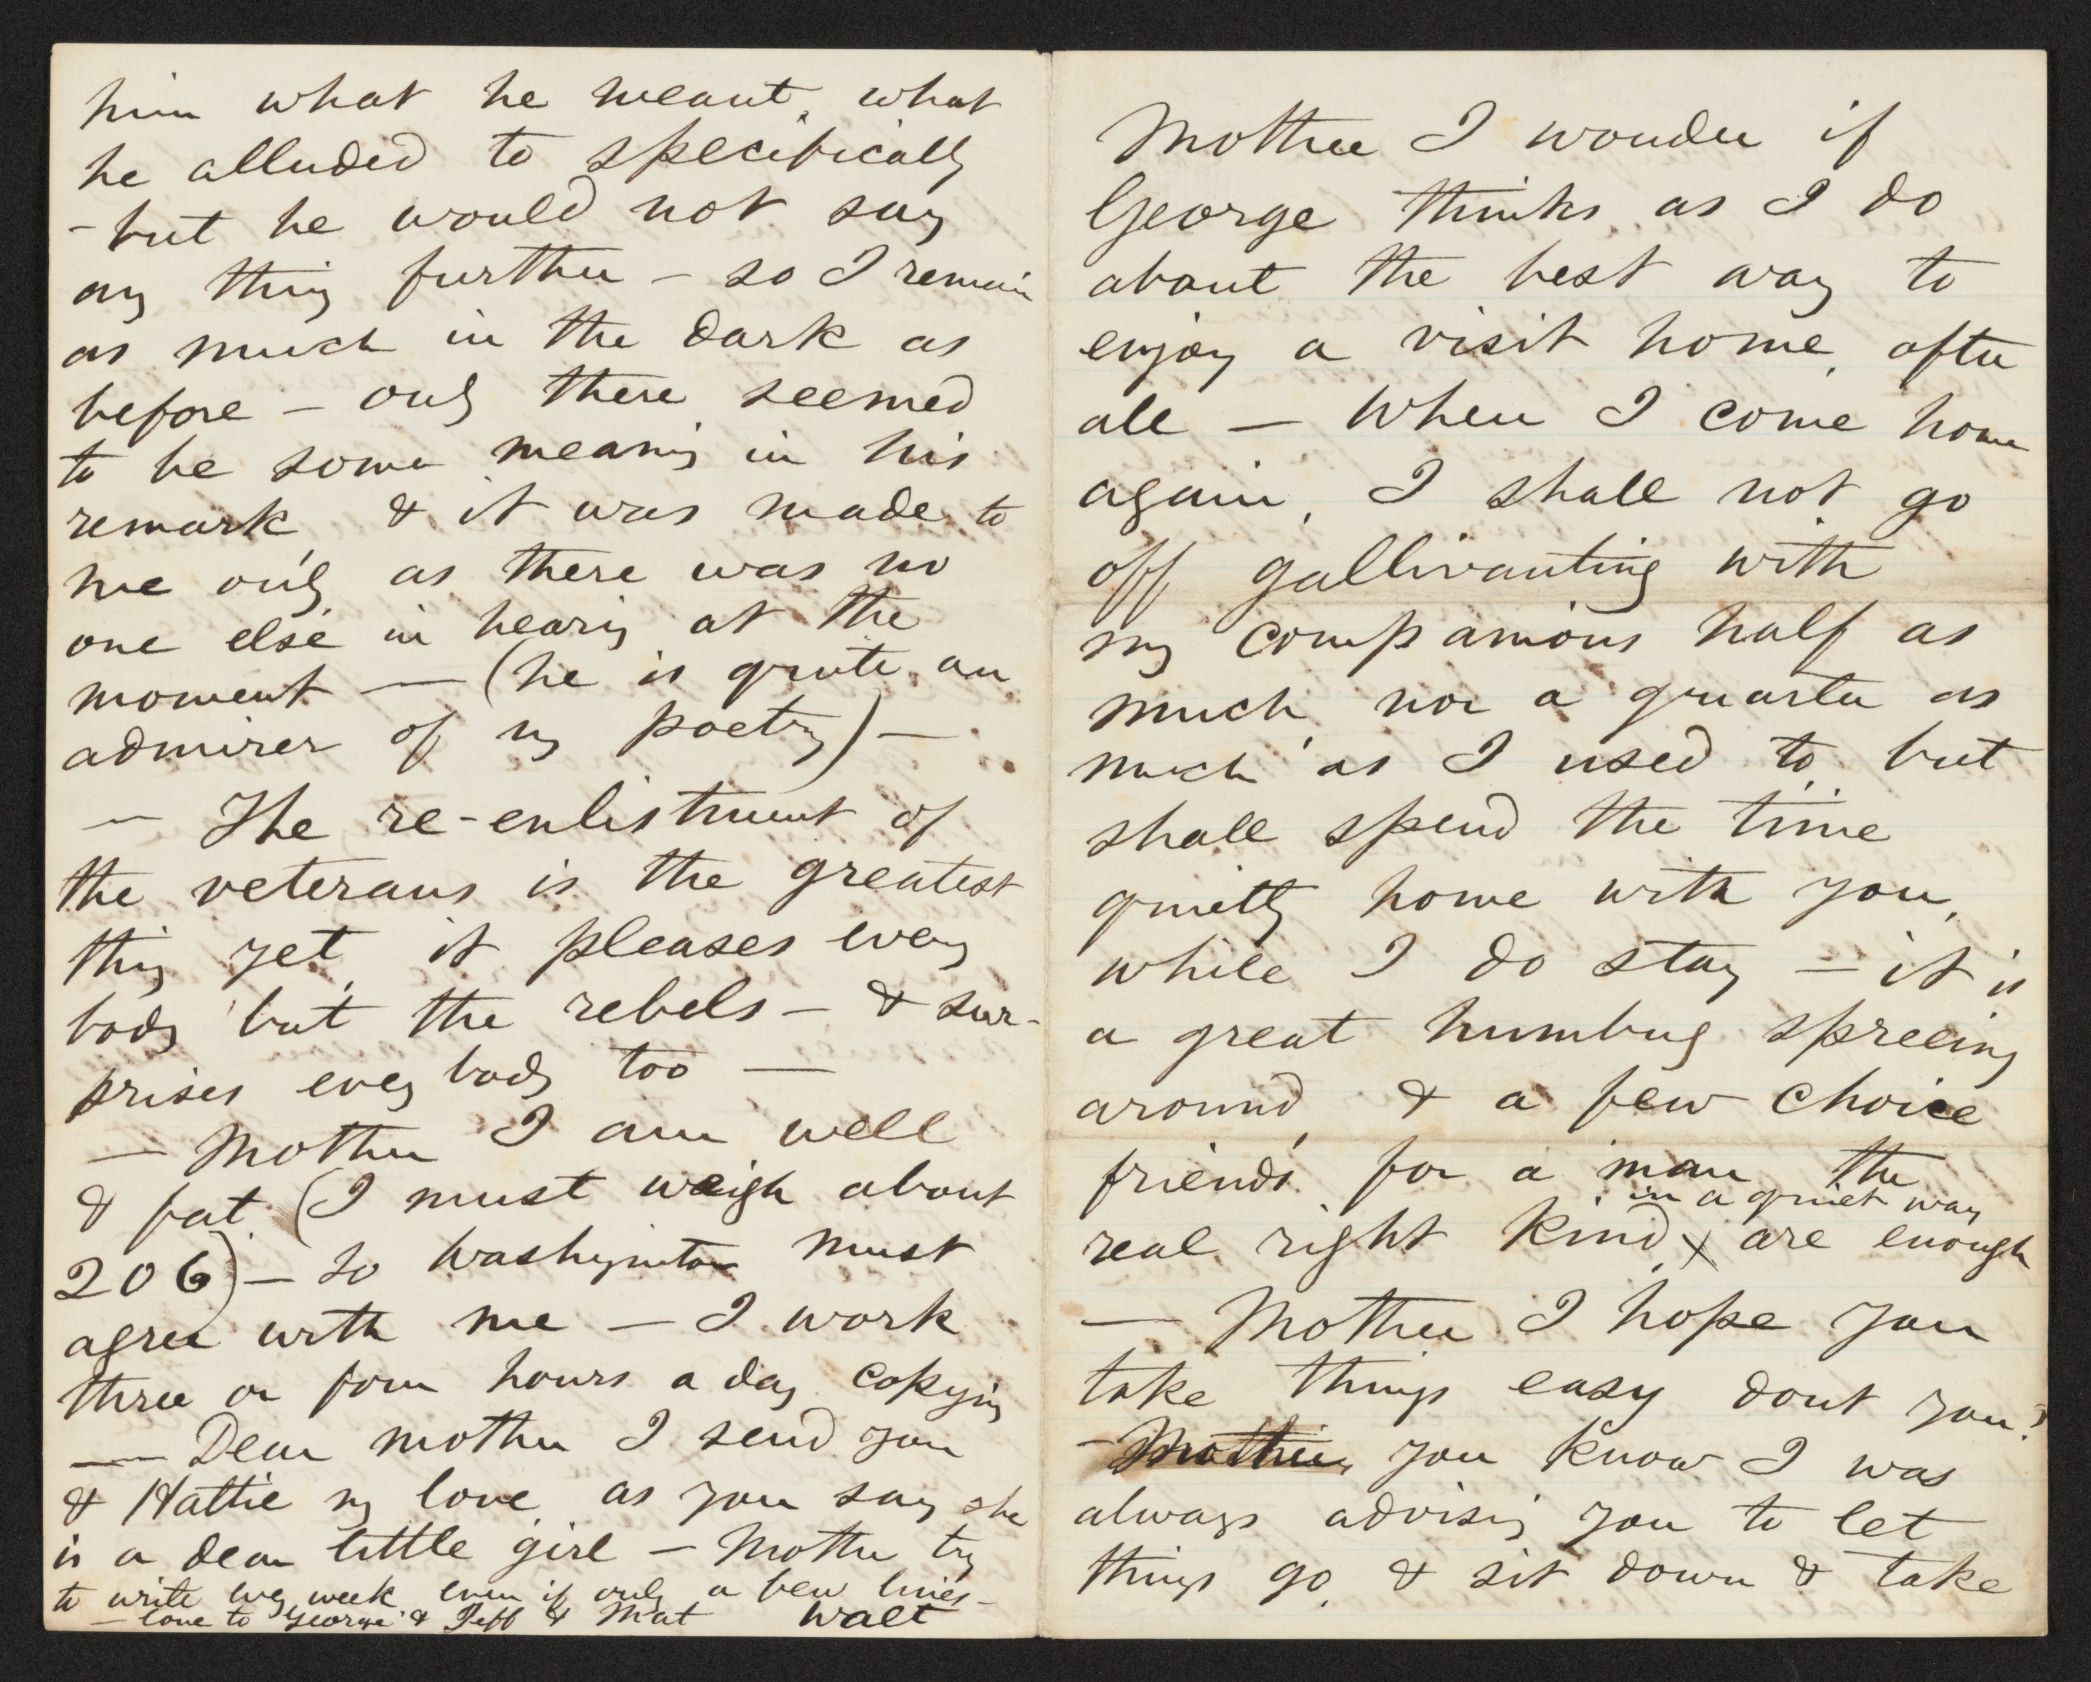 him what he meant, what
he alluded to specifically
- but he would not say
any thing further - so I remain
as much in the dark as
before - only there seemed
to be some meaning in his
remark, & it was made to
me only, as there was no
one else in hearing at the
moment — (he is quite an
admirer of my poetry) —
— The re-enlistment of
the veterans is the greatest
thing yet, it pleases every
body but the rebels - & sur-
prises every body too —
— Mother I am well
& fat (I must weigh about
206) - so Washington must
agree with me - I work
three or four hours a day copying
— Dear mother I send you
& Hattie my love, as you say she
is a dear little girl - Mother try
to write every week, even if only a few lines -
- love to George & Jeff & Mat Walt
Mother I wonder if
George thinks as I do
about the best way to
enjoy a visit home, after
all — When I come home
again, I shall not go
off gallivanting with
my companions half as
much, nor a quarter as
much as I used to, but
shall spend the time
quietly home with you,
while I do stay - it is
a great humbug spreeing
around, & a few choice
friends for a man, the
in a quiet way
real right kind, × are enough
— Mother I hope you
take things easy dont you?
- Mother, you know I was
always advising you to let
things go, & sit down & take